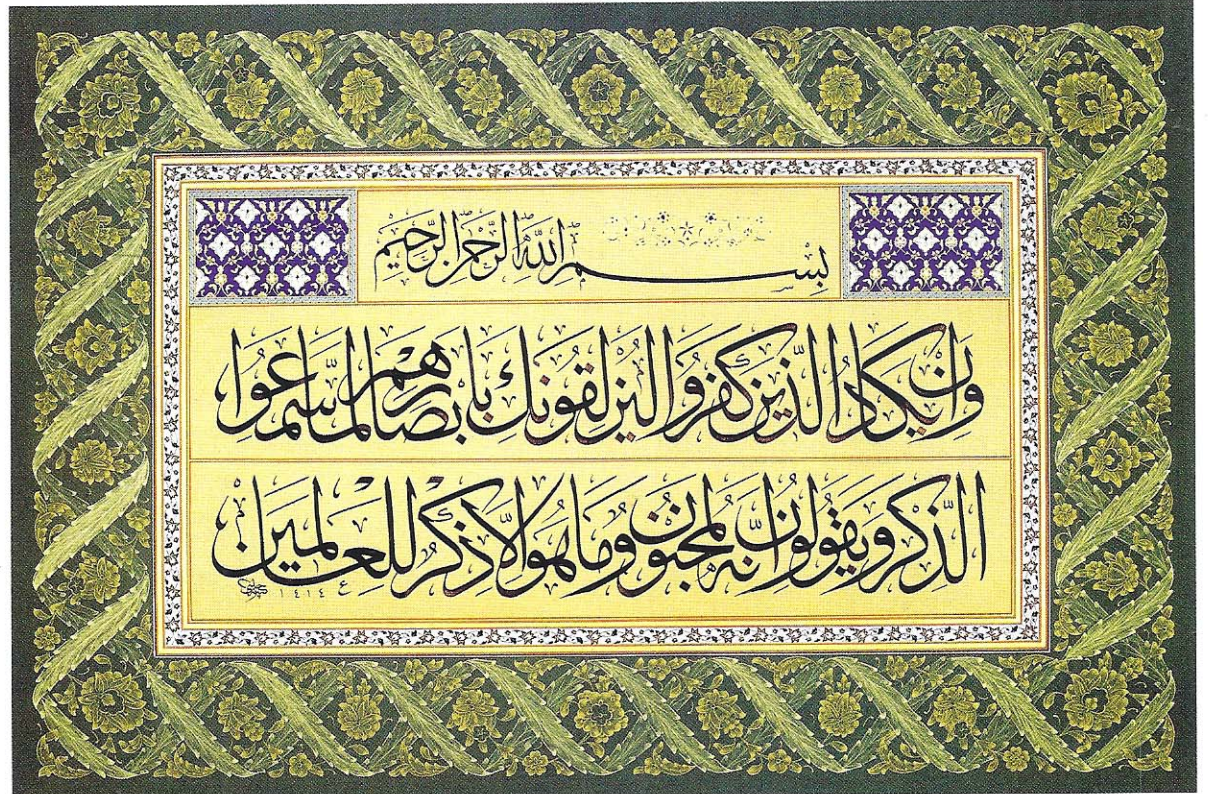 بسم الله الرحمن الرحيم
وان يكاد الذين كفروا ليزلقونك بابصارهم لما سمعوا
الذكر ويقولون انه لمجنون وما هو الا ذكر للعالمين
١٤١٤ ع